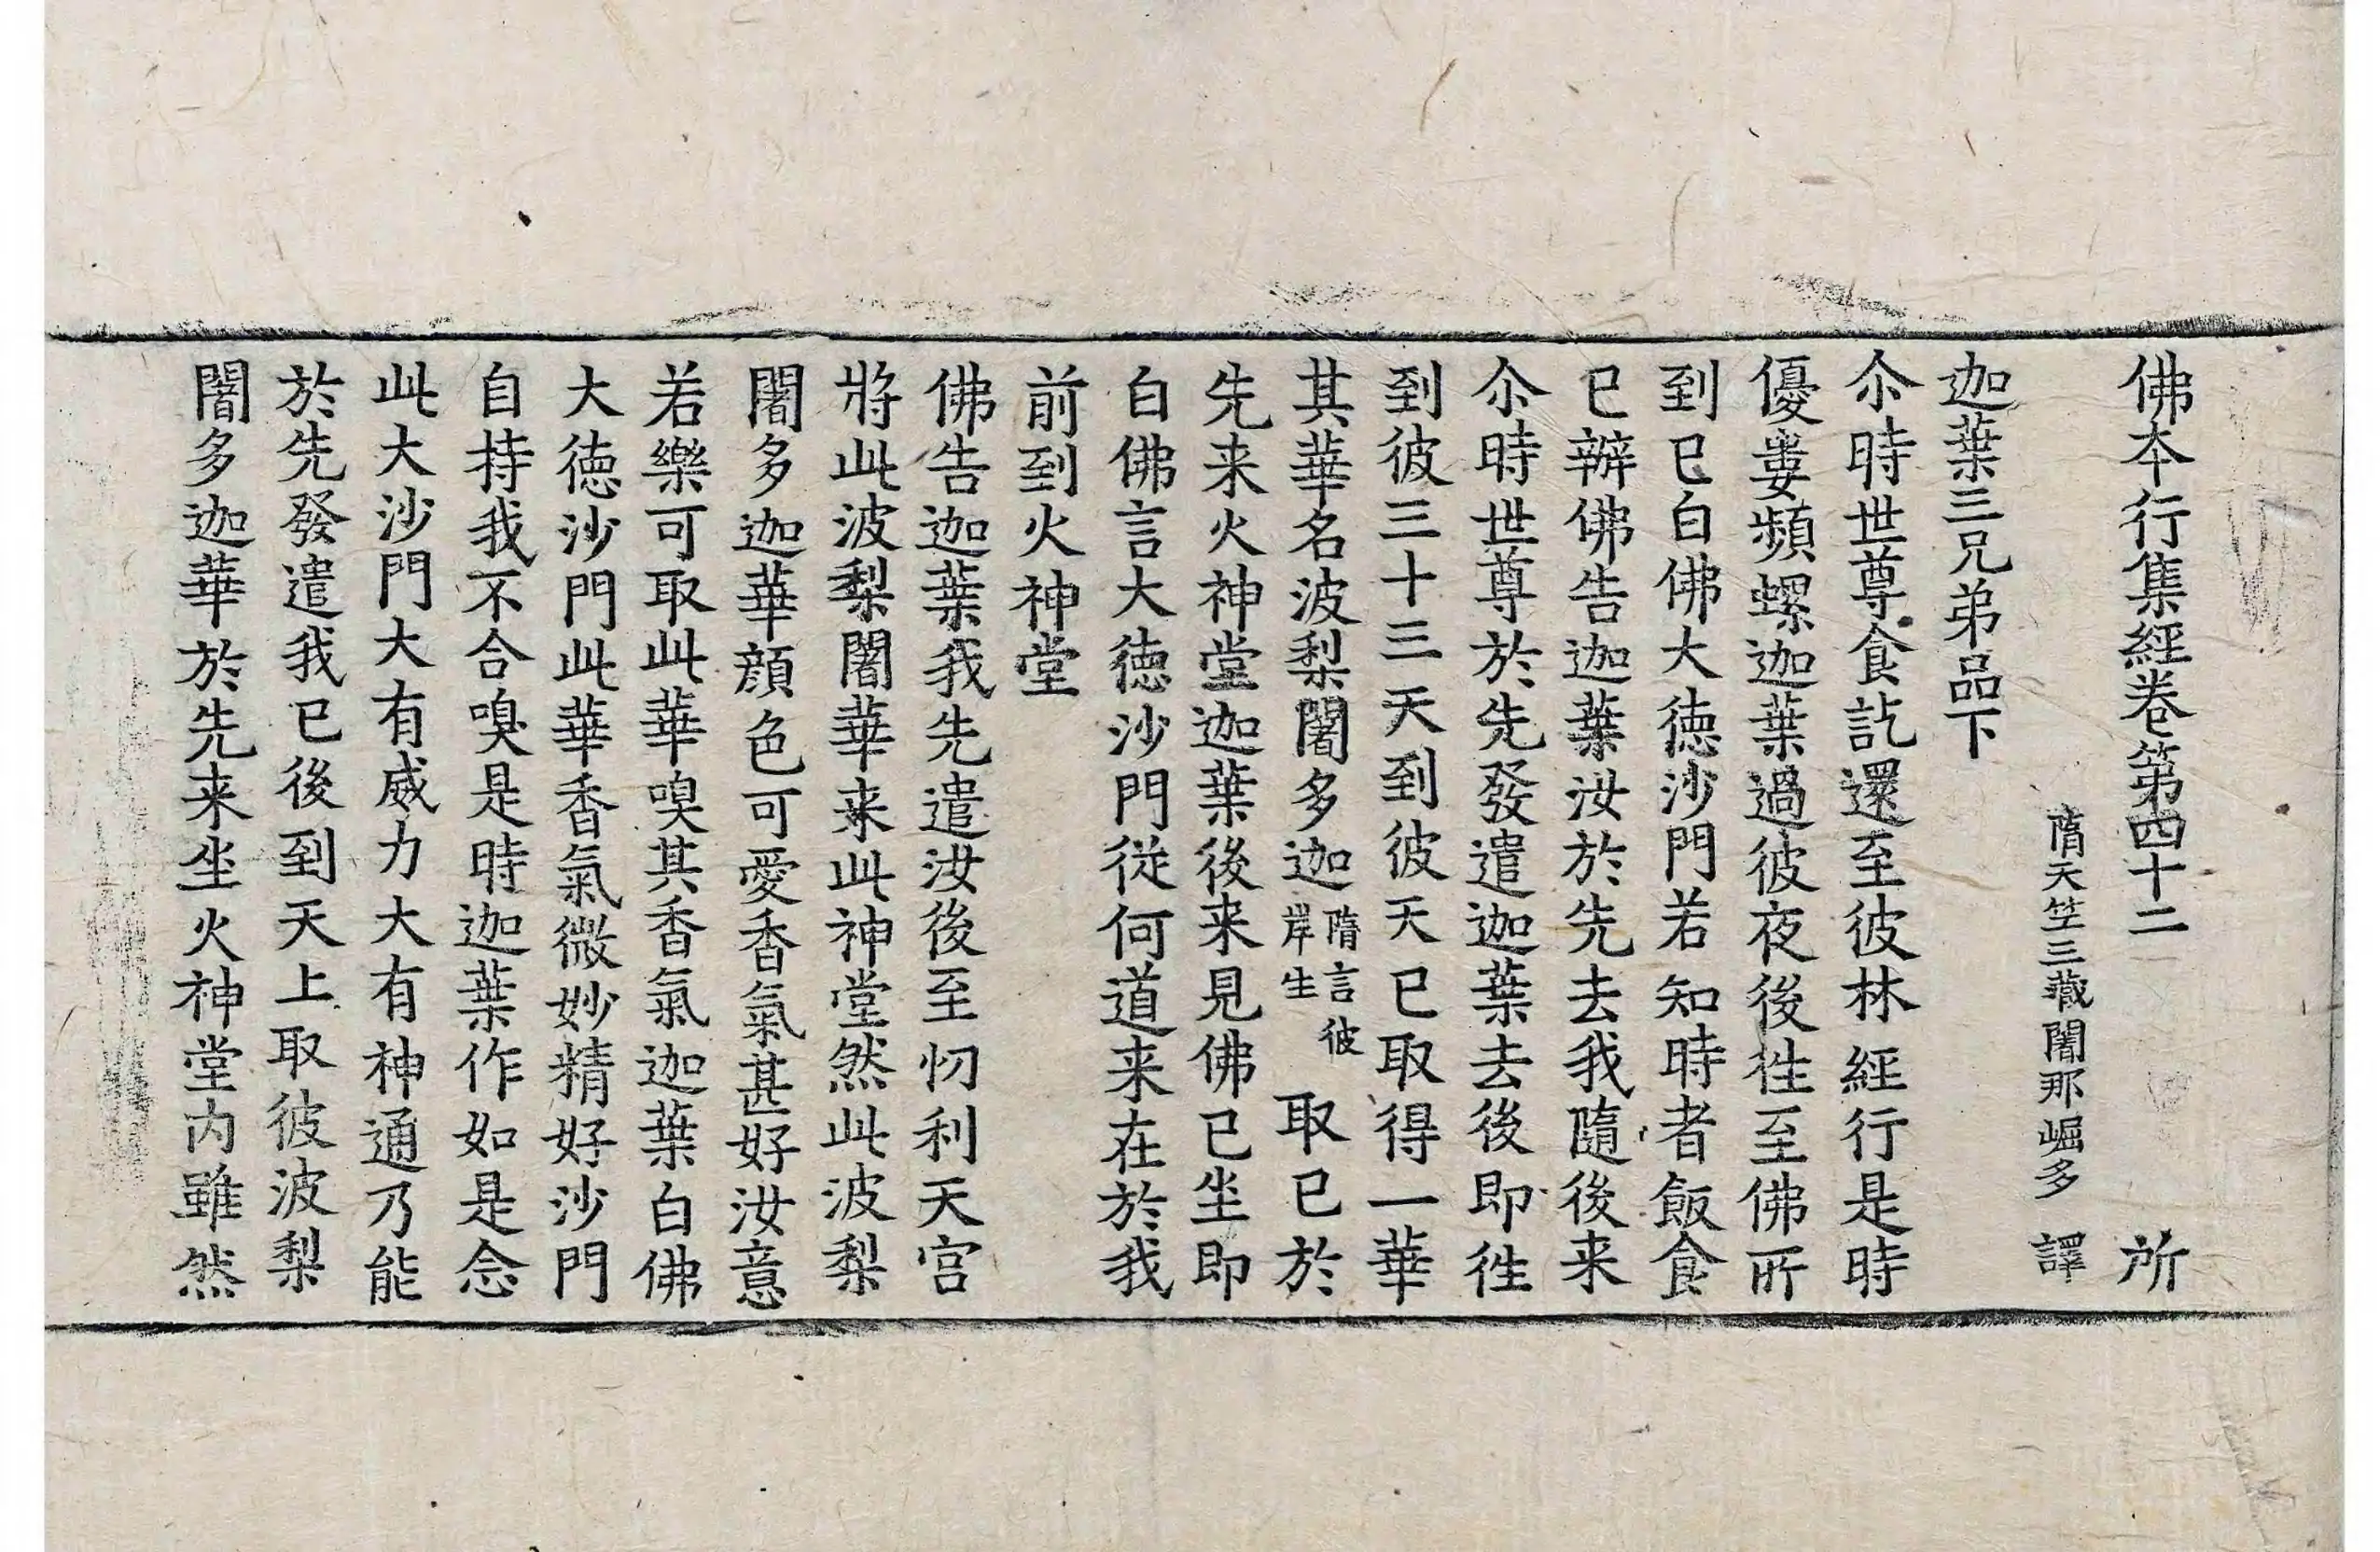 佛本行集經卷第四十二 所
隋天竺三藏闍那崛多 譯
迦葉三兄弟品下
尒時世尊食訖還至彼林經行是時
優婁頻螺迦葉過彼夜後徃至佛所
到已白佛大徳沙門若知時者飯食
已辦佛告迦葉汝於先去我隨後来
尒時世尊於先發遣迦葉去後即徃
到彼三十三天到彼天已取得一華
其華名波梨闍多迦隋言彼岸生取已於
先来火神堂迦葉後来見佛已坐即
白佛言大徳沙門従何道来在於我
前到火神堂
佛告迦葉我先遣汝後至忉利天宫
將此波梨闍華来此神堂然此波梨
闍多迦華顔色可愛香氣甚好汝意
若樂可取此華嗅其香氣迦葉白佛
大徳沙門此華香氣微妙精好沙門
自持我不合嗅是時迦葉作如是念
此大沙門大有威力大有神通乃能
於先發遣我已後到天上取彼波梨
闍多迦華於先来坐火神堂内雖然